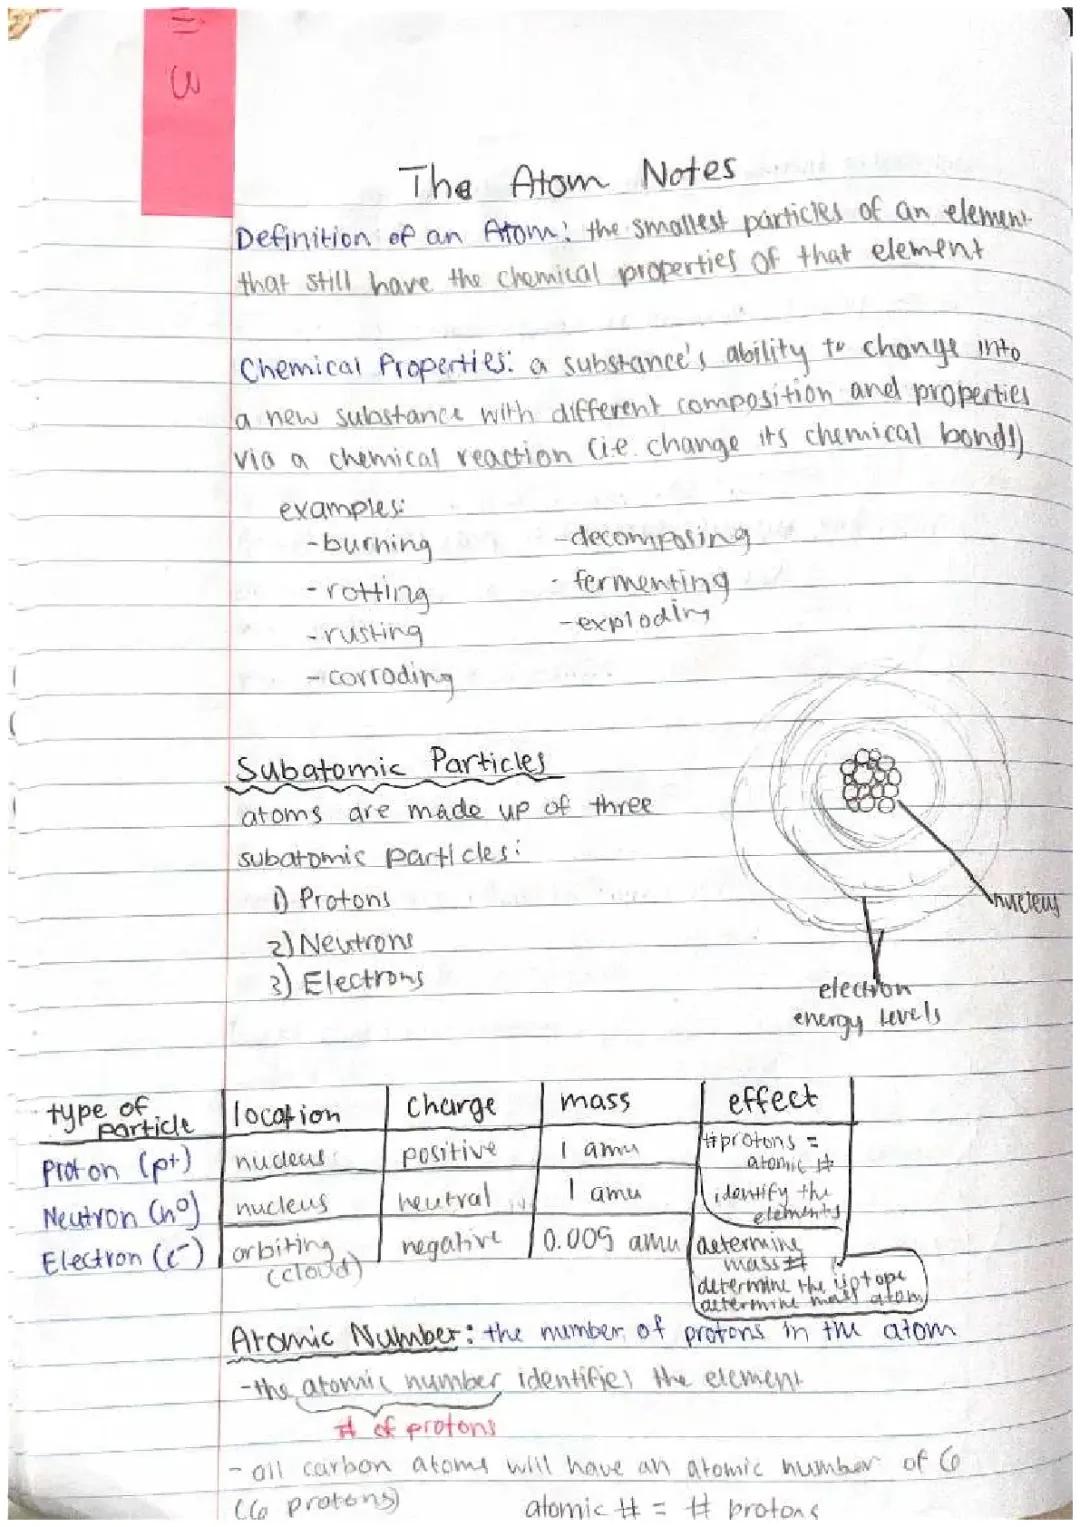 3
The Atom Notes
Definition of an Atom: the smallest particles of an element
that still have the chemical properties of that element
Chemical Properties: a substance's ability to change into
a new substance with different composition and properties
via a chemical reaction (i.e. change its chemical bonds!)
examples:
-burning -decomposing
-rotting -fermenting
-rusting -exploding
-corroding
Subatomic Particles
atoms are made up of three
subatomic particles:
1) Protons
2) Neutrons
3) Electrons
nucleus
electron
energy levels
type of particle location Charge mass effect
Proton (p+) nucleus positive 1 amu #protons = atomic #
identify the elements
Neutron (n⁰) nucleus neutral 1 amu determine mass #
determine the isotope
determine mass atom
Electron (e⁻) orbiting (cloud) negative 0.005 amu
Atomic Number: the number of protons in the atom
-the atomic number identifies the element
# of protons
- all carbon atoms will have an atomic number of 6
(6 protons) atomic # = # protons